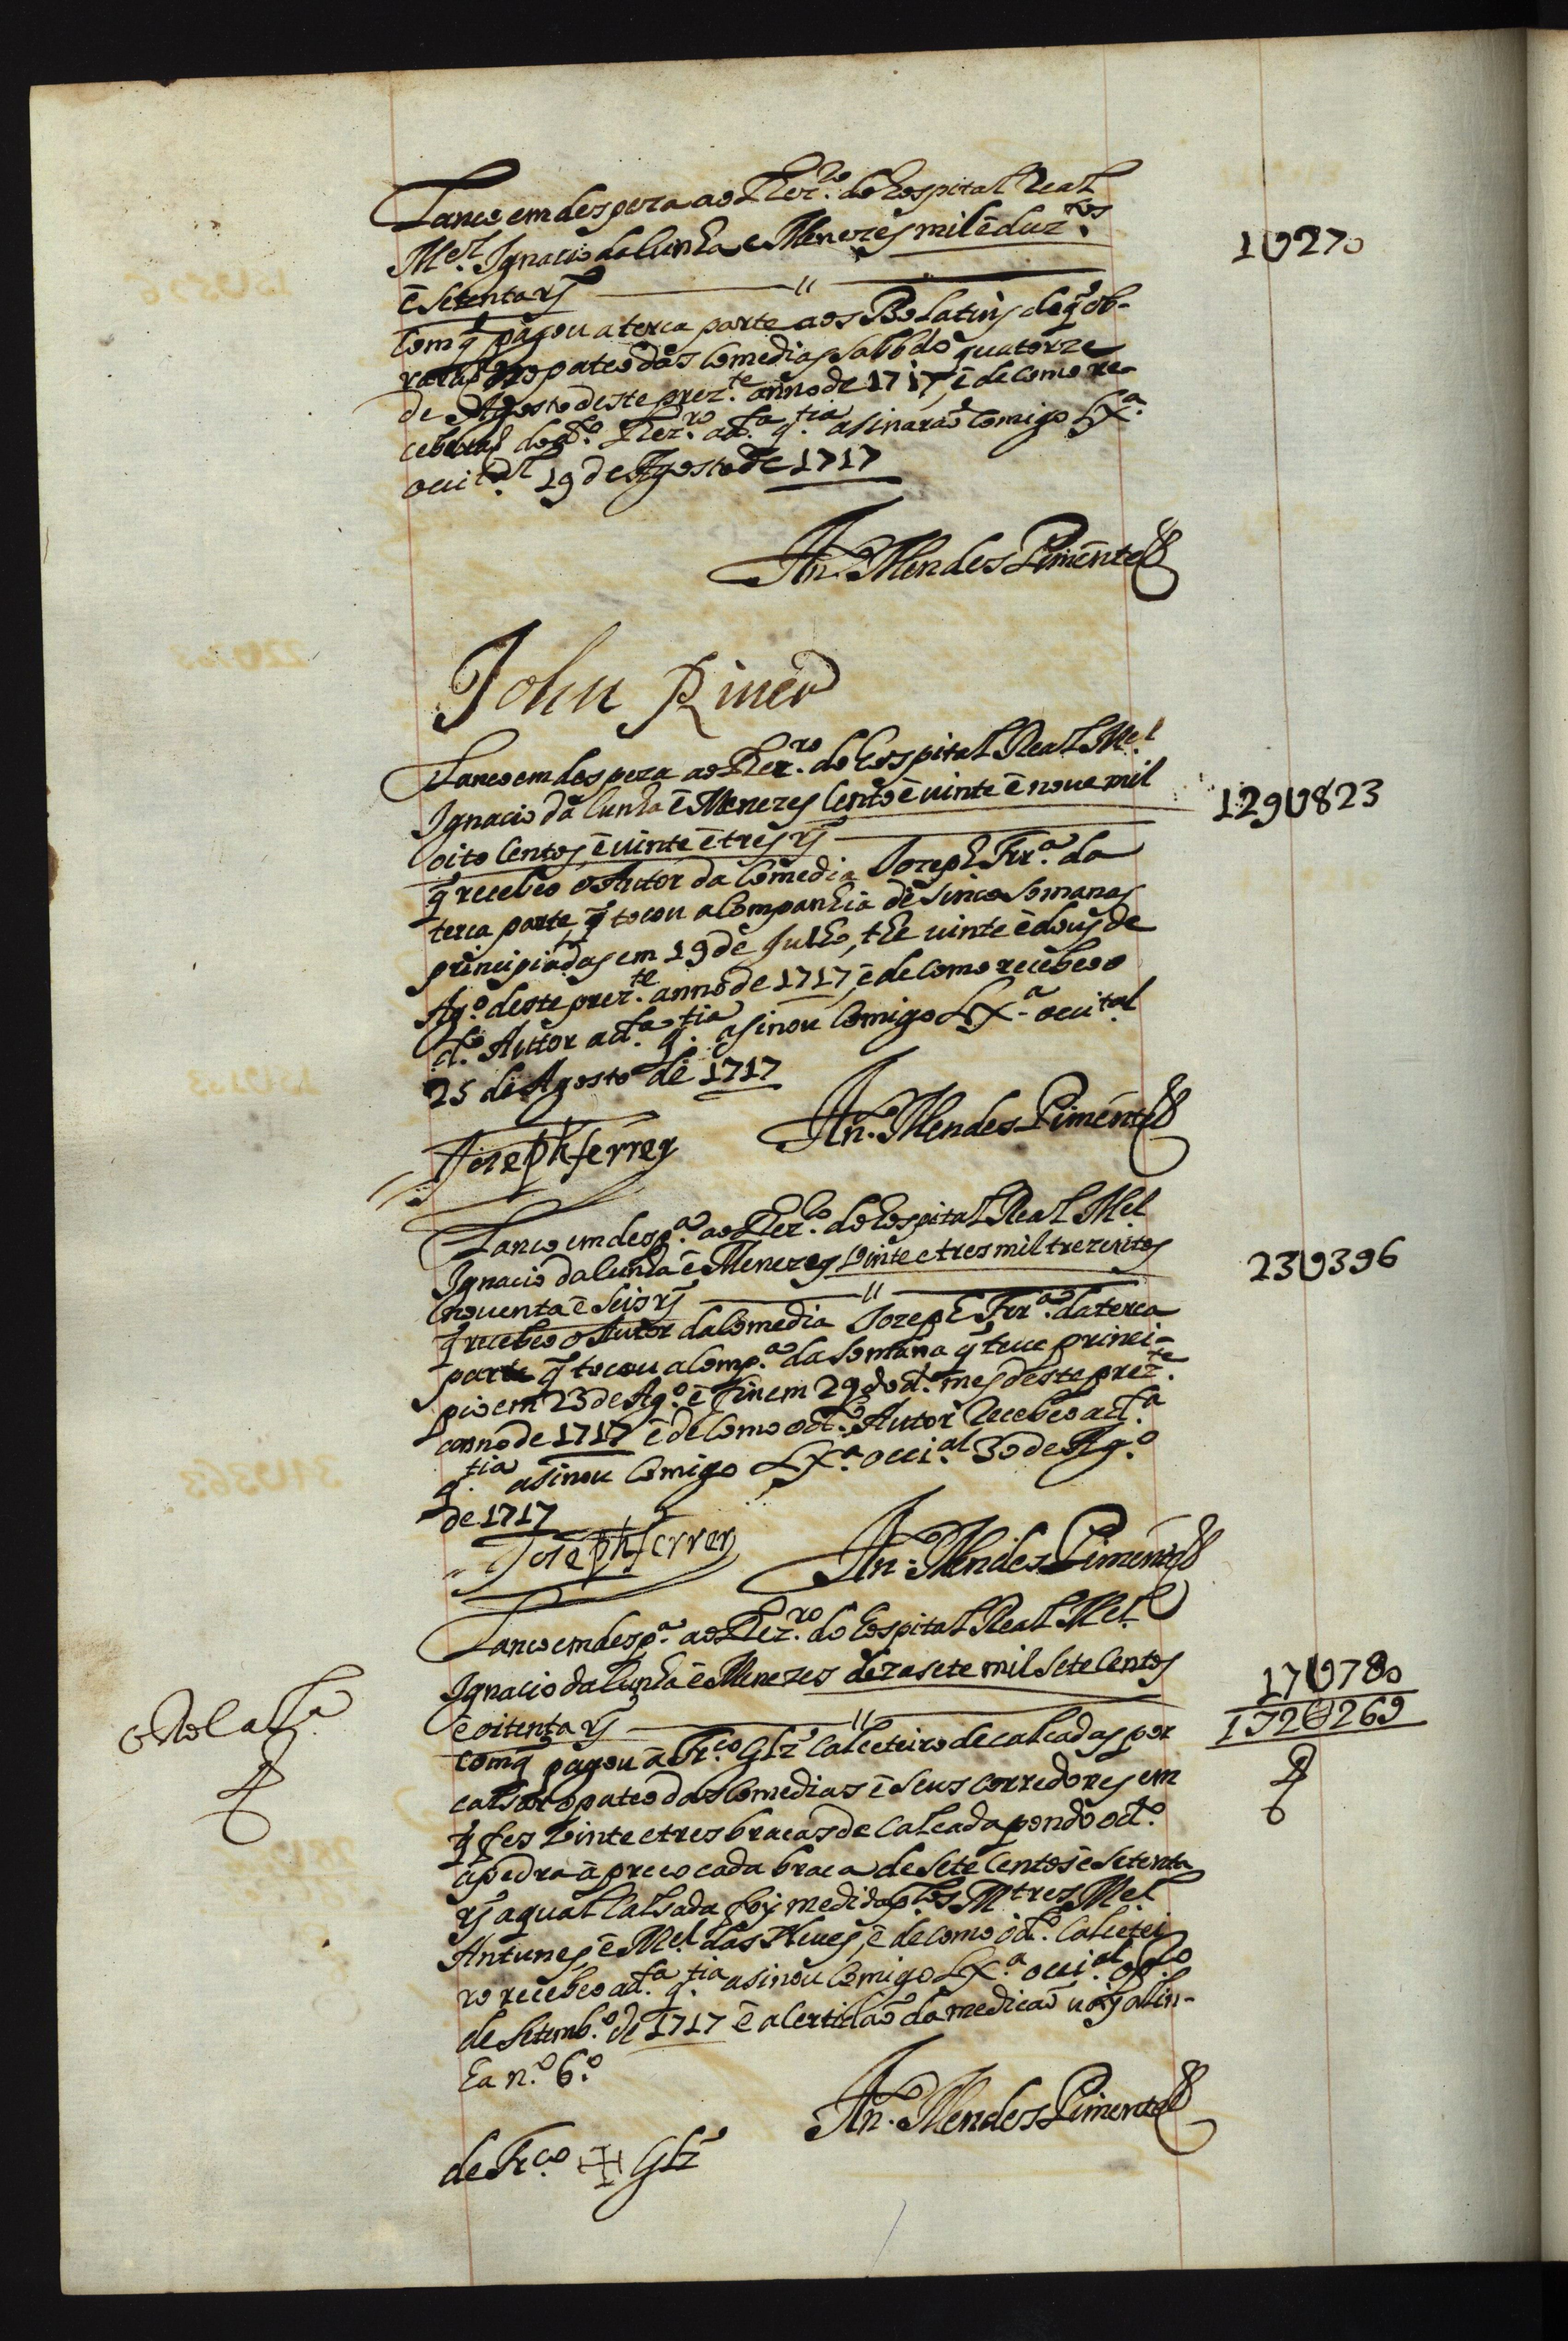 Lanco em despeza ao Thez.ro do Hospital Real
M.el Ignacio da Cunha e Menezes mil ē duz.tos
ē Setenta rs̃ ———— " ————
Com q̃ pagou a terca parte aos Bolatins de q̃ ob-
raraõ no pateo das Comedias Sabbdo quatorze
de Agosto deste prez.te anno de 1717, ē de como re-
ceberaõ do d.o Thez.ro a d.a q.tia asinaraõ Comigo Lx.a
occid.al 19 de Agosto de 1717
1U270
An. Mendes Pimentel
John Riner
Lanco em despeza ao Thez.ro do Hospital Real M.el
Ignacio da Cunha ē Menezes Cento ē vinte ē nove mil
oito Centos, ē vinte ē tres rs̃ ————
129U823
q̃ recebeo o Autor da Comedia Jozeph Frr.a da
terca parte, q̃ tocou a Companhia de Sinco Somanas
principiadas em 19 de Julho, the vinte ē dous de
Ag.o deste prez.te anno de 1717, ē de Como recebeo o
d.o Autor a d.a q.tia asinou Comigo Lx.a occi.tal
25 de Agosto de 1717
Joseph ferrer An. Mendes Pimentel
Lanco em desp.a ao Thez.ro do Hospital Real M.el
Ignacio da Cunha ē Menezes Vinte e tres mil trezentos
noventa ē Seis rs̃ ———— " ————
23U396
q̃ recebeo o Autor da Comedia Jozeph Frr.a da terca
parte q̃ tocou a Comp.a da Somana q̃ teve princi-
pio em 23 de Ag.o ē fin em 29 do d.o mes deste prez.te
anno de 1717 ē de Como o d.o Autor Recebeo a d.a
q.tia asinou Comigo Lx.a occi.al 30 de Ag.o
de 1717
Joseph ferrer An. Mendes Pimentel
Lanco em desp.a ao Thez.ro do Hospital Real M.el
Ignacio da Cunha ē Menezes dezasete mil Sete Centos
ē oitenta rs̃ ———— " ————
17U780
192U269
Com q̃ pagou ā Fr.co Glz̃ Calceteiro de calcadas por
calsar o pateo das Comedias ē Seus corredores em
q̃ fes Vinte e tres bracas de Calcada pondo o d.o
a pedra ā preco cada braca de Sete Centos ē Setenta
rs̃ a qual Calsada foy medida p.los M.tres M.el
Antunes, ē M.el das Neves, ē de como o d.o Calcetei
ro recebeo a d.a q.tia asinou Comigo Lx.a occi.al
de Setemb.o de 1717 ē a Certidaõ da medicaõ vay a lin-
ha n.o 6.o
An. Mendes Pimentel
de Fr.co + Glz̃